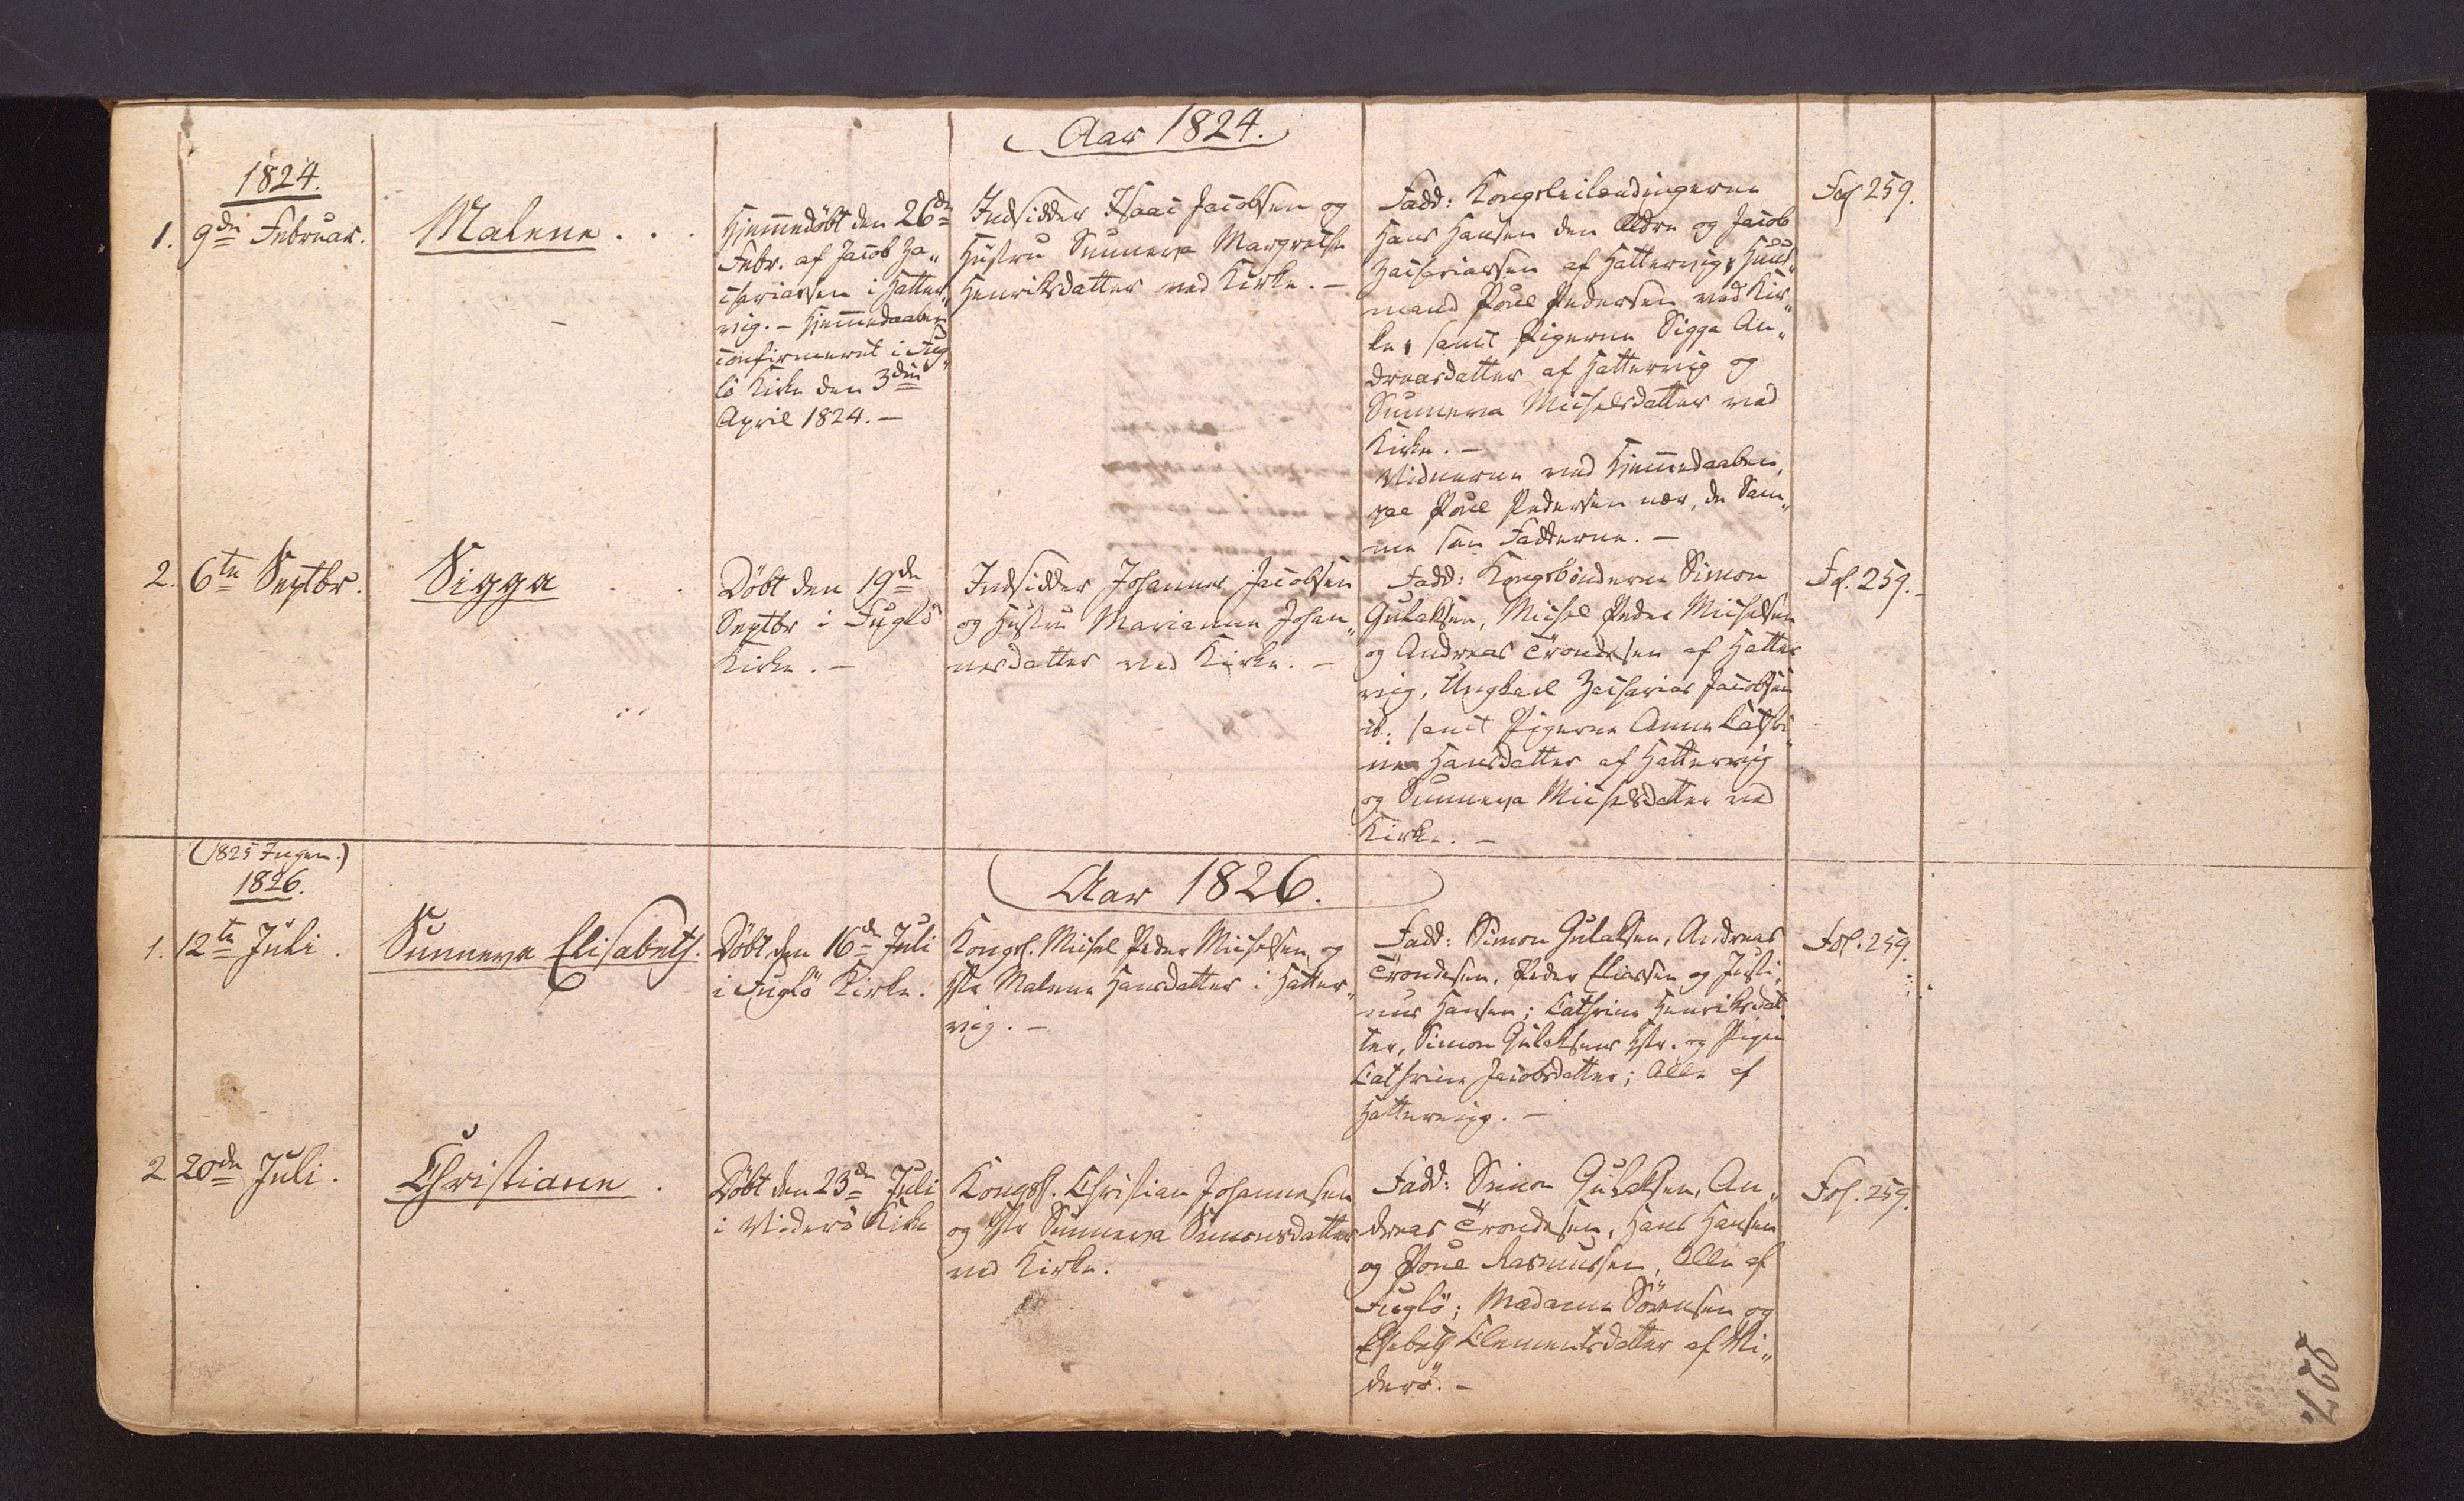 Aar 1824.
1824.
1. 9de Februar.
Malene . . .
Hjemmedöbt den 26de
Febr. af Jacob Za„
chariassen i Hatter„
vig. – Hjemmedaaben
confirmeret i Fug„
lö Kirke den 3die
April 1824. –
Indsidder Isaac Jacobsen og
Hustru Sunneva Margrethe
Henriksdatter ved Kirke. –
Fadd: Kongsleilændingerne
Hans Hansen den Ældre og Jacob
Zachariassen af Hattervig, Huus„
mand Poul Pedersen ved Kir„
ke, samt Pigerne Sigga An„
dreasdatter af Hattervig og
Sunneva Michelsdatter ved
Kirke. –
Vidnerne ved Hjemmedaaben,
Poul Pedersen nær, de Sam„
me som Fadderne. –
Fol 259.
2. 6te Septbr.
Sigga . .
Döbt den 19de
Septbr i Fuglö
Kirke. –
Indsidder Johannes Jacobsen
og Hustru Marianne Johan„
nesdatter ved Kirke. –
Fadd: Kongsbönderne Simon
Gulaksen, Michel Peder Michelsen
og Andreas Tröndesen af Hatter
vig, Ungkarl Zacharias Jacobsen
ib: samt Pigerne Anne Cathri„
ne Hansdatter af Hattervig
og Sunneva Michelsdatter ved
Kirke. –
Fol. 259. –
(1825 Ingen.)
1826.
Aar 1826.
1. 12te Juli.
Sunneva Elisabeth.
Döbt den 16de Juli
i Fuglö Kirke.
Kongsf. Michel Peder Michelsen og
Hstr Malene Hansdatter i Hatter„
vig. –
Fadd: Simon Gulaksen, Andreas
Tröndesen, Peder Eliassen og Justi„
nus Hansen; Cathrine Henriksdat
ter, Simon Gulaksens Hstr. og Pigen
Cathrine Jacobsdatter; Alle af
Hattervig. –
Fol. 259.
2 20de Juli.
Christiane .
Döbt den 23de Juli
i Viderö Kirke
Kongsf. Christian Johannesen
og Hstr Sunneva Simonsdatter
ved Kirke.
Fadd: Simon Gulaksen, An„
dreas Tröndesen, Hans Hansen
og Poul Rasmussen, Alle af
Fuglö; Madame Sörensen og
Elsebeth Clementsdatter af Vi„
derö. –
Fol. 259.
227.